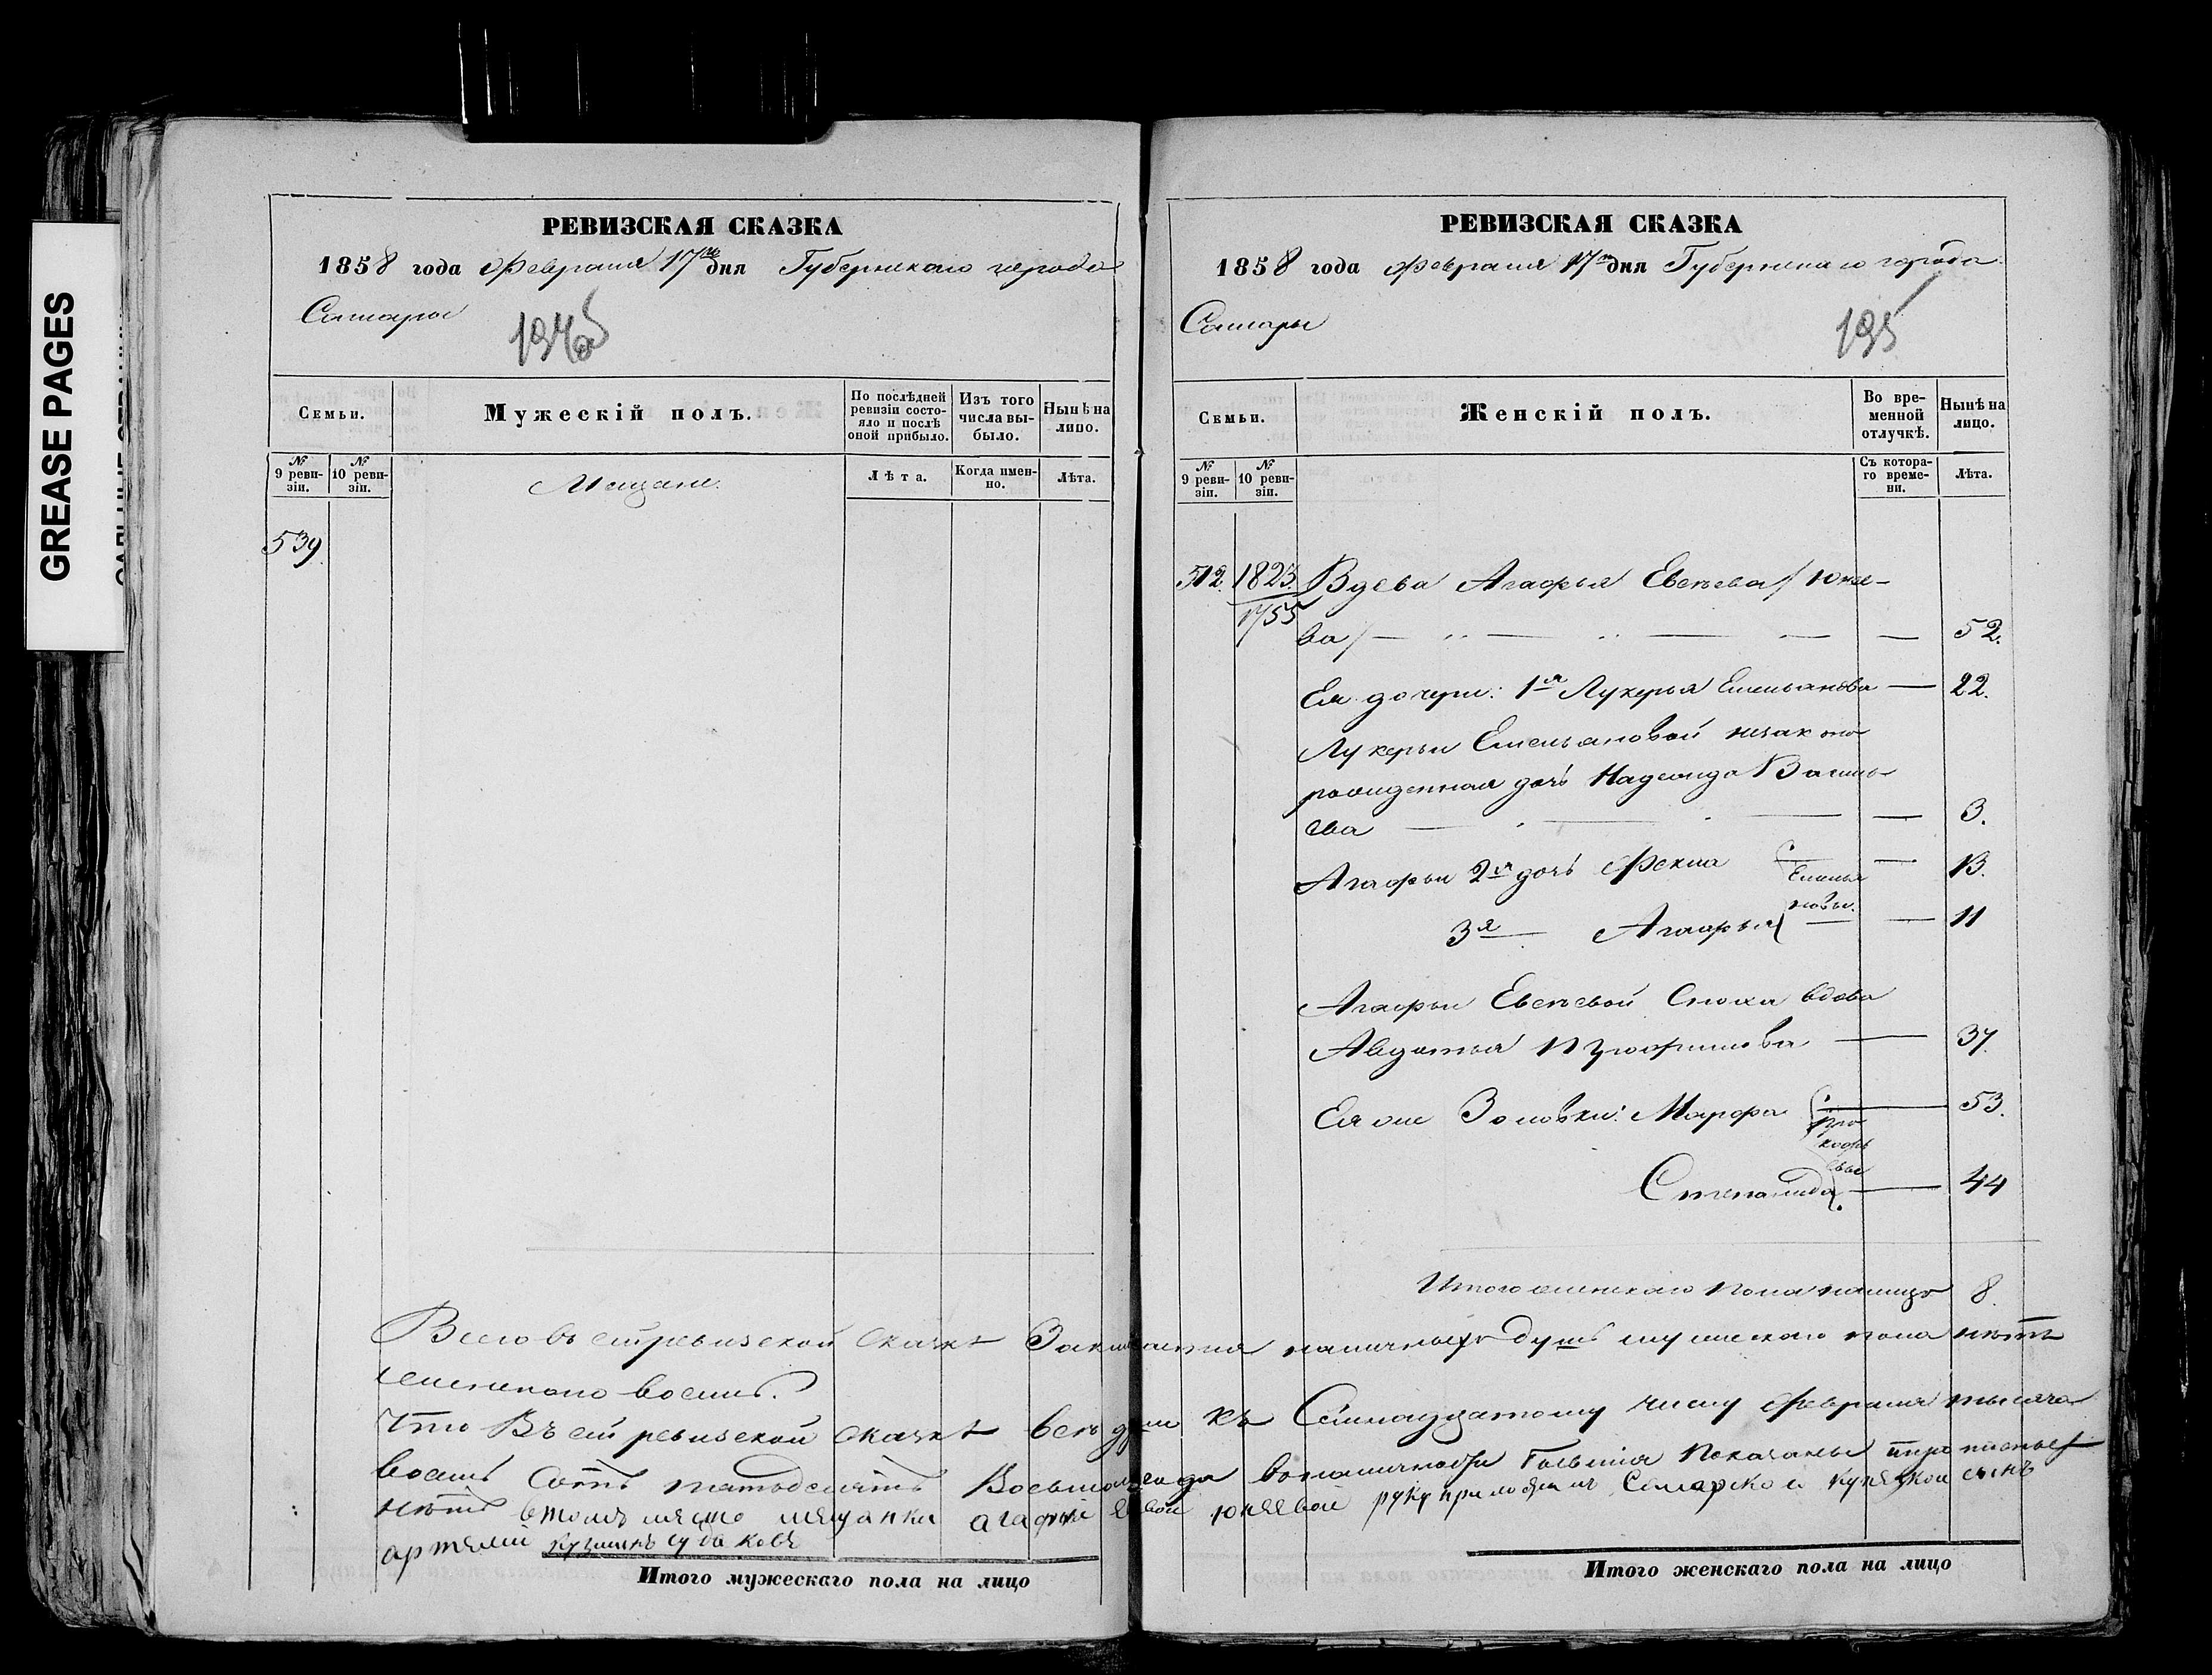 GREASE PAGES
РЕВИЗСКАЯ СКАЗКА
1858 года Февраля 17го дня Губернскаго города
Самары
194об
Семьи.
Мужескій полъ.
По послѣдней ревизіи состояло и послѣ оной прибыло.
Изъ того числа выбыло.
Нынѣ на лицо.
№ 9 ревизіи.
№ 10 ревизіи.
Мещане.
Лѣта.
Когда именно.
Лѣта.
539
РЕВИЗСКАЯ СКАЗКА
1858 года Февраля 17го дня Губернскаго города
Самары
195
Семьи.
Женскій полъ.
Во временной отлучкѣ.
Нынѣ на лицо.
№ 9 ревизіи.
№ 10 ревизіи.
Съ котораго времени.
Лѣта.
512. 1823. Вдова Агафья Евсѣева / Юнѣ-
1755
ва / — 52.
Ея дочери: 1я Лукерья Емельянова — 22.
Лукерьи Емельяновой незаконо
рожденная дочь Надежда Василь-
ева — 3.
Агафьи 2я дочь Фекла — 13.
Емелья
новы.
3я — Агафья — 11
Агафьи Евсѣевой Сноха вдова
Авдотья — 37.
Ея же Золовки: Марфа — 53.
Про
кофь
евы
Степанида — 44
Итого женскаго пола налицо 8.
Всего въ сей ревизской сказкѣ Заключается наличныхъ душъ мужескаго пола нѣтъ
женскаго восемь.
Что Въ сей ревизской сказкѣ всѣ души къ Семнадцатому числу Февраля тысяча
восемь сотъ пятьдесятъ Восьмаго года
нѣтъ втомъ мещанки агафьи юнѣевой руку приложилъ Самарской купецкой сынъ
артемій кузминъ судаковъ
Итого мужескаго пола на лицо
Итого женскаго пола на лицо